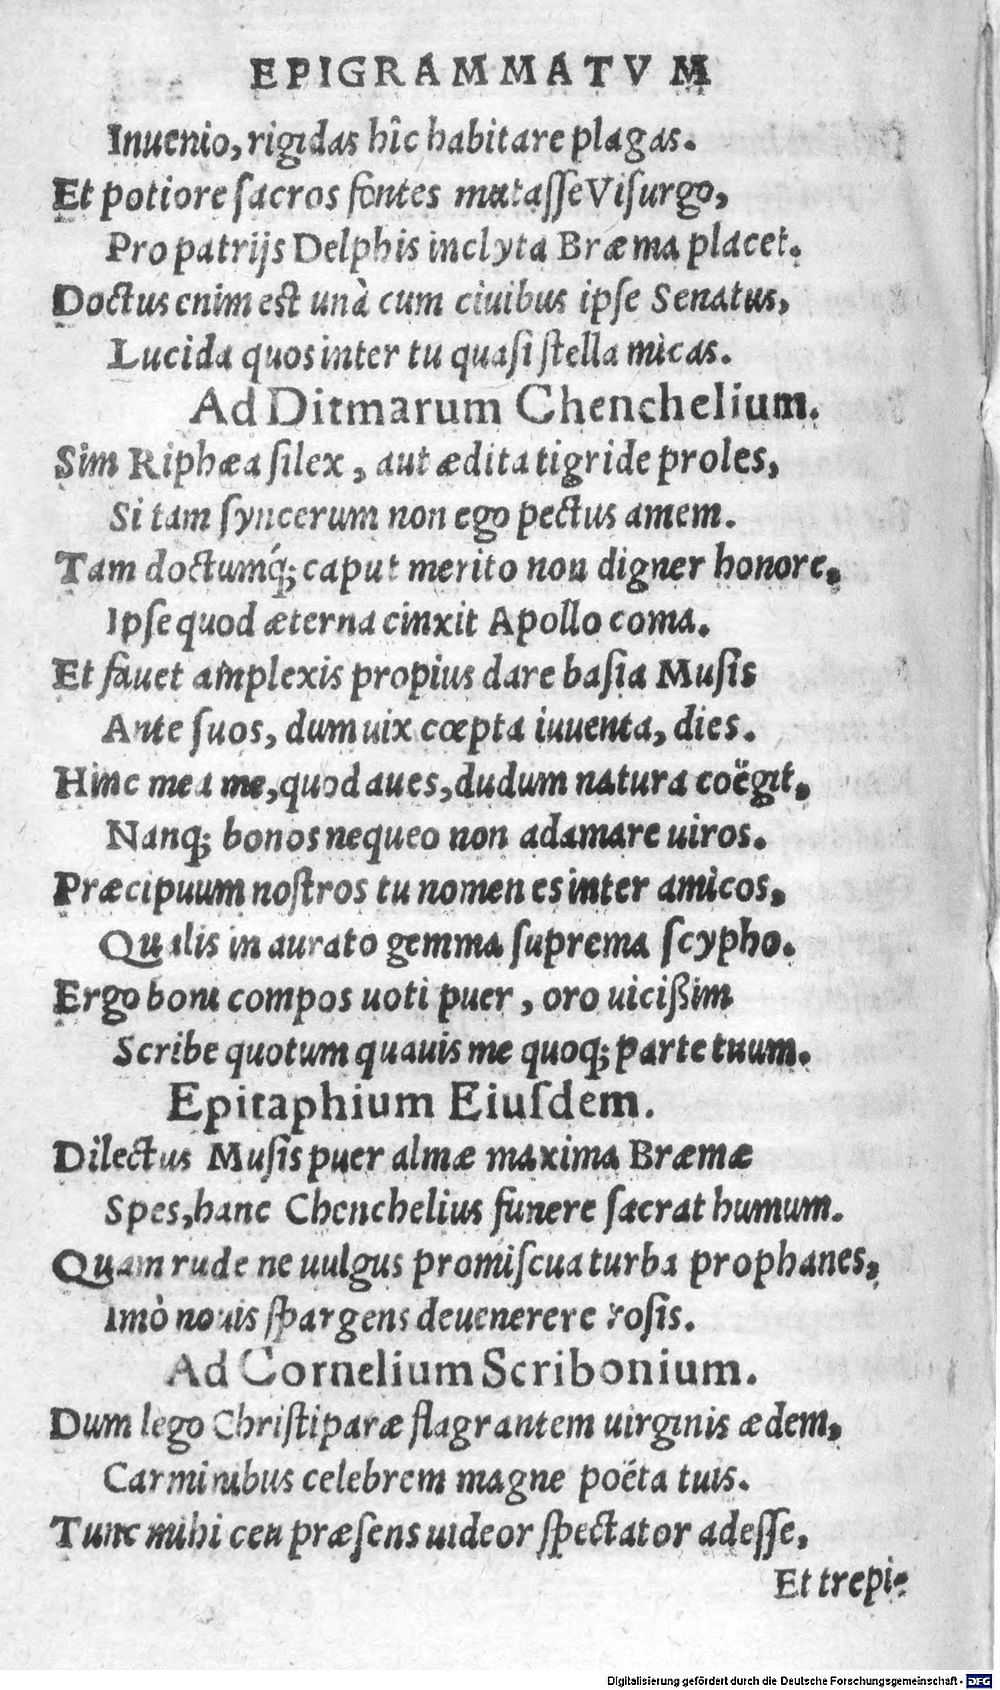 EPIGRAMMATVM
Inuenio, rigidas hîc habitare plagas.
Et potiore ſacros fontes mutaſſe Viſurgo,
Pro patrijs Delphis inclyta Bræma placet.
Doctus enim est unà cum ciuibus ipſe Senatus,
Lucida quos inter tu quaſi ſtella micas.
Ad Ditmarum Chenchelium.
Sim Riphæa ſilex, aut ædita tigride proles,
Si tam ſyncerum non ego pectus amem.
Tam doctumq́; caput merito non digner honore,
Ipſe quod æterna cinxit Apollo coma.
Et fauet amplexis propius dare baſia Muſis
Ante ſuos, dum uix cœpta iuuenta, dies.
Hinc mea me, quod aues, dudum natura coëgit,
Nanq; bonos nequeo non adamare uiros.
Præcipuum noſtros tu nomen es inter amicos,
Qualis in aurato gemma ſuprema ſcypho.
Ergo boni compos uoti puer, oro uicißim
Scribe quotum quauis me quoq; parte tuum.
Epitaphium Eiuſdem.
Dilectus Muſis puer almæ maxima Bræmæ
Spes, hanc Chenchelius funere ſacrat humum.
Quam rude ne uulgus promiſcua turba prophanes,
Imò nouis ſpargens deuenerere roſis.
Ad Cornelium Scribonium.
Dum lego Chriſtiparæ flagrantem uirginis ædem,
Carminibus celebrem magne poëta tuis.
Tunc mihi ceu præſens uideor ſpectator adeſſe,
Et trepi-
Digitalisierung gefördert durch die Deutsche Forschungsgemeinschaft - DFG